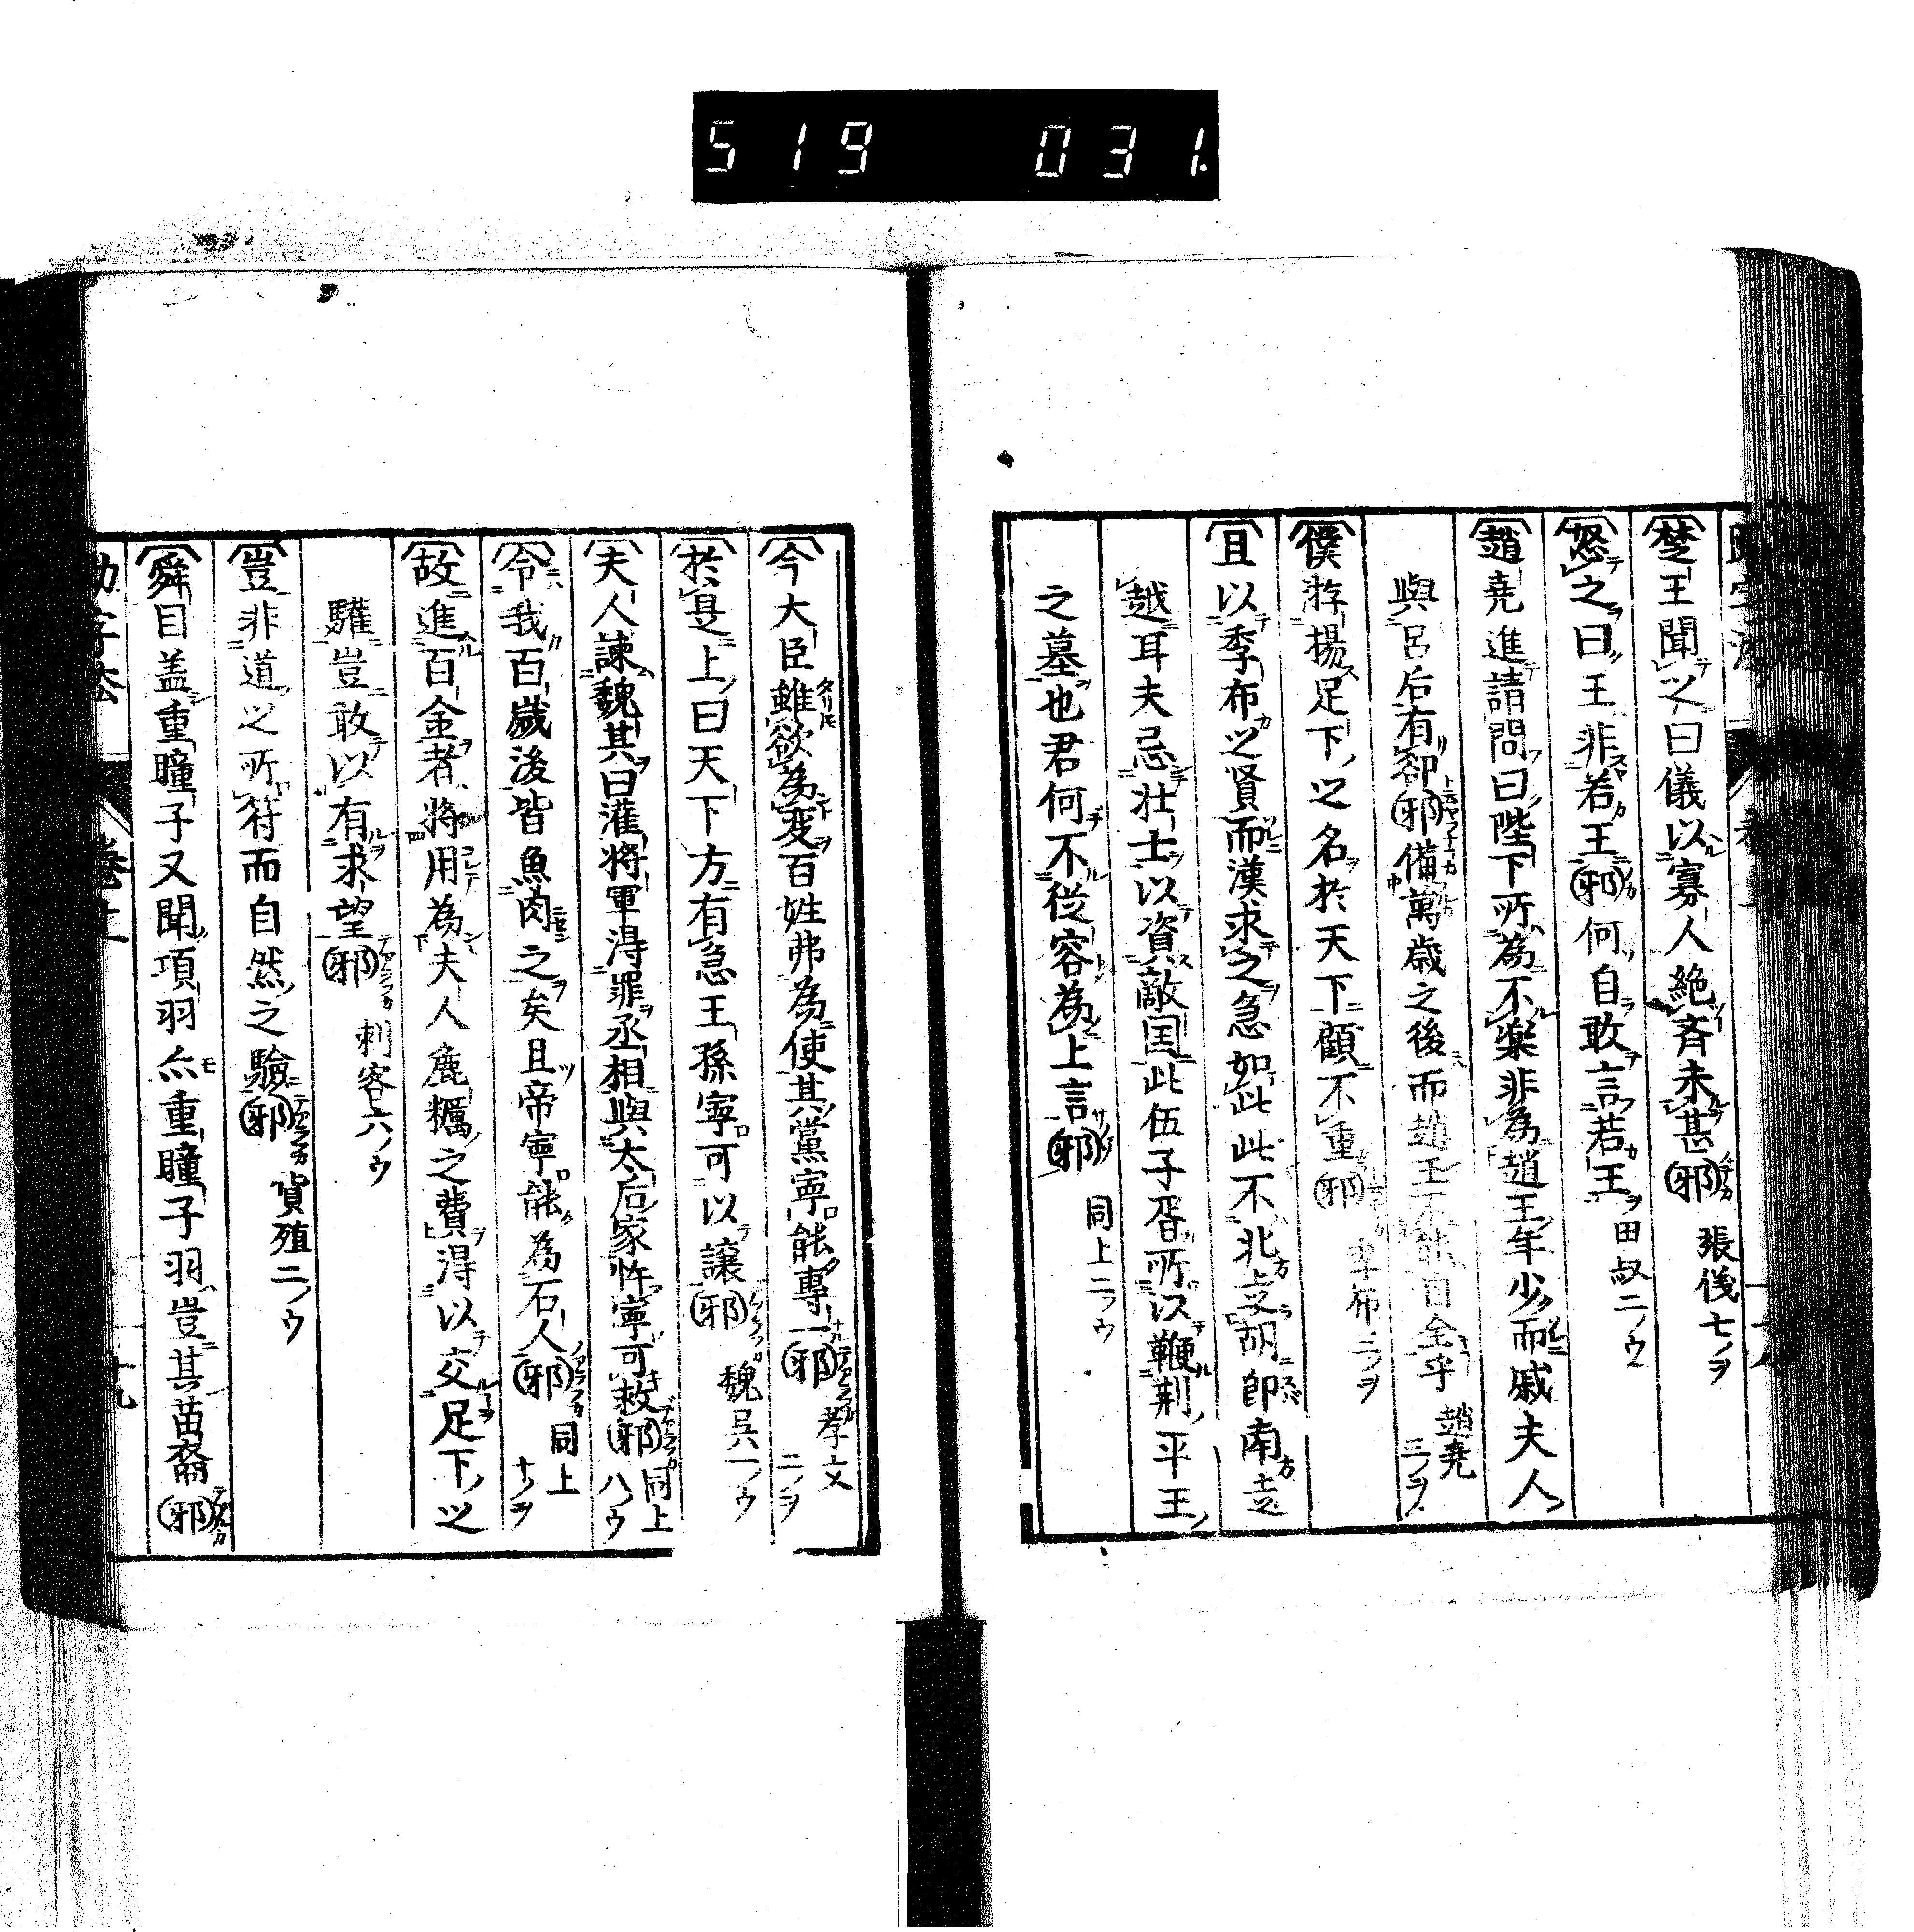 519 031.
楚王聞之曰儀以寡人絶斉未甚邪 張儀七ノヲ
怒之曰王非若王邪何自敢言若王 田叔二ノウ
趙尭進請問曰陛下所為不楽非為趙王年少而戚夫人
與呂后有郤邪備萬歳之後而趙王不能自全乎 趙尭三ノヲ
僕游揚足下之名於天下顧不重邪 季布三ノヲ
且以季布之賢而漢求之急如此此不北走胡即南走
越耳夫忌壮士以資敵国此伍子胥所以鞭荆平王
之墓也君何不従容為上言邪 同上二ノウ
今大臣雖欲為変百姓弗為使其黨寧能專一邪 孝文二ノヲ
於是上曰天下方有急王孫寧可以譲邪 魏其一ノウ
夫人諫魏其曰灌将軍得罪丞相與太后家忤寧可救邪 同上八ノウ
令我百歳後皆魚肉之矣且帝寧能為石人邪 同上十ノヲ
故進百金者将用為夫人麁糲之費得以交足下之
驩豈敢以有求望邪 刺客六ノウ
豈非道之所符而自然之驗邪 貨殖二ノウ
舜目盖重瞳子又聞項羽亦重瞳子羽豈其苗裔邪